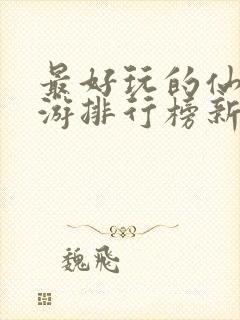 最好玩的仙
游排行榜新
魏飛